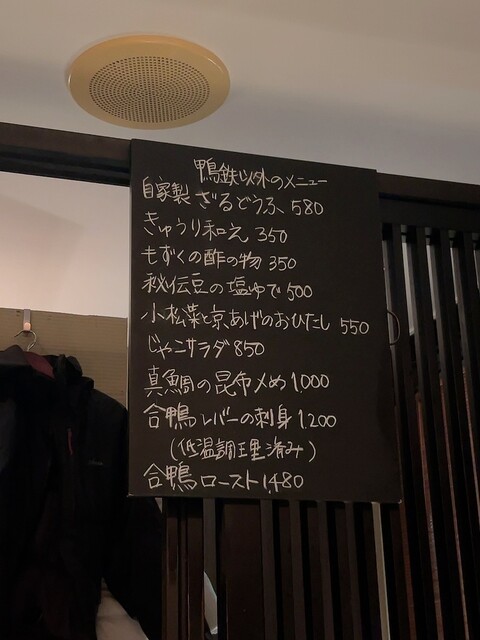 鴨鉄以外のメニュー
自家製ざるどうふ 580
きゅうり和え 350
もずくの酢の物 350
秘伝豆の塩ゆで 500
小松菜と京あげのおひたし 550
じゃこサラダ 850
真鯛の昆布〆め 1,000
合鴨レバーの刺身 1,200
(低温調理済み)
合鴨ロースト 1,480